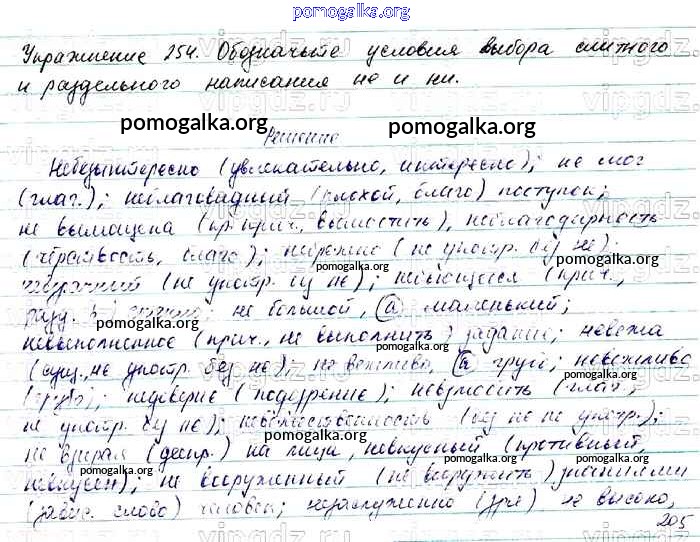 pomogalka.org
Упражнение 254. Обозначьте условия выбора слитного
и раздельного написания не и ни.
pomogalka.org pomogalka.org
Решение
Небезынтересно (увлекательно, интересно); не мог
(глаг.); неблаговидный (плохой, благо) поступок;
не вымощена (кр. прич., вымостить), неблагодарность
(чёрствость, благо.); небрежно (не употр. без не);
pomogalka.org
(не употр. без не); (прич.,
pomogalka.org
не большой, а маленький;
pomogalka.org
невыполненное (прич., не выполнить) задание; невежа
pomogalka.org
(сущ., не употр. без не); не вежлива, а груба; невежливо
pomogalka.org
(грубо); недоверие (подозрение); (глаг.,
не употр. без не); (без не не употр.);
pomogalka.org
не взирая (деепр.) на лица, невкусный (противный,
pomogalka.org
не вооруженный (не вооружить) знаниями
pomogalka.org
(завис. слово) человек; незаслуженно (зря) не высоко,
205
vipgdz.ru